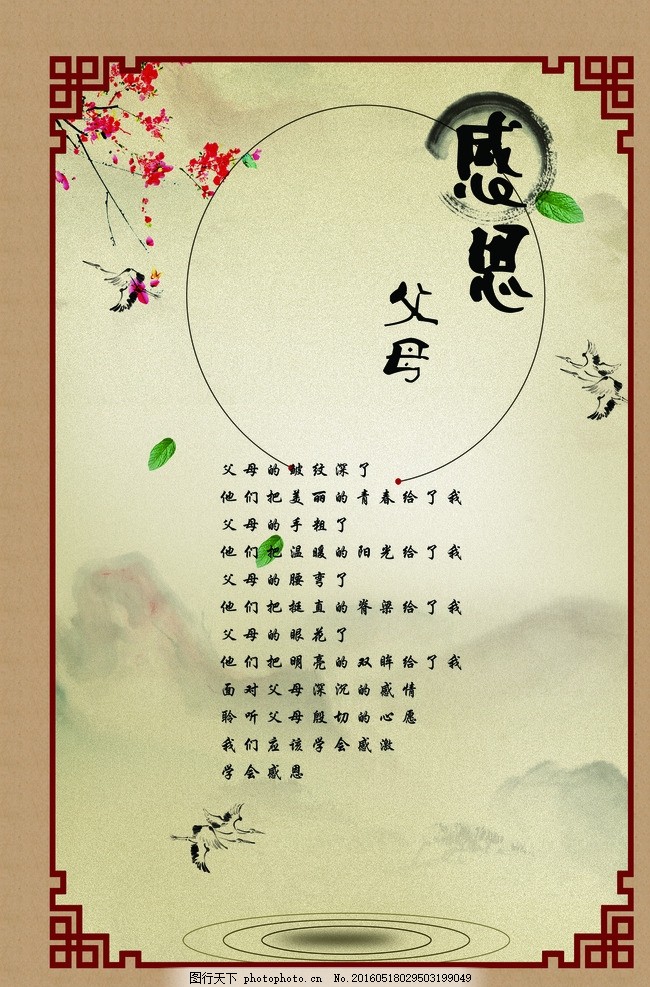 感恩
父母
父母的皱纹深了
他们把美丽的青春给了我
父母的手粗了
他们把温暖的阳光给了我
父母的腰弯了
他们把挺直的脊梁给了我
父母的眼花了
他们把明亮的双眸给了我
面对父母深沉的感情
聆听父母殷切的心愿
我们应该学会感激
学会感恩
图行天下 photophoto.cn No.20160518029503199049